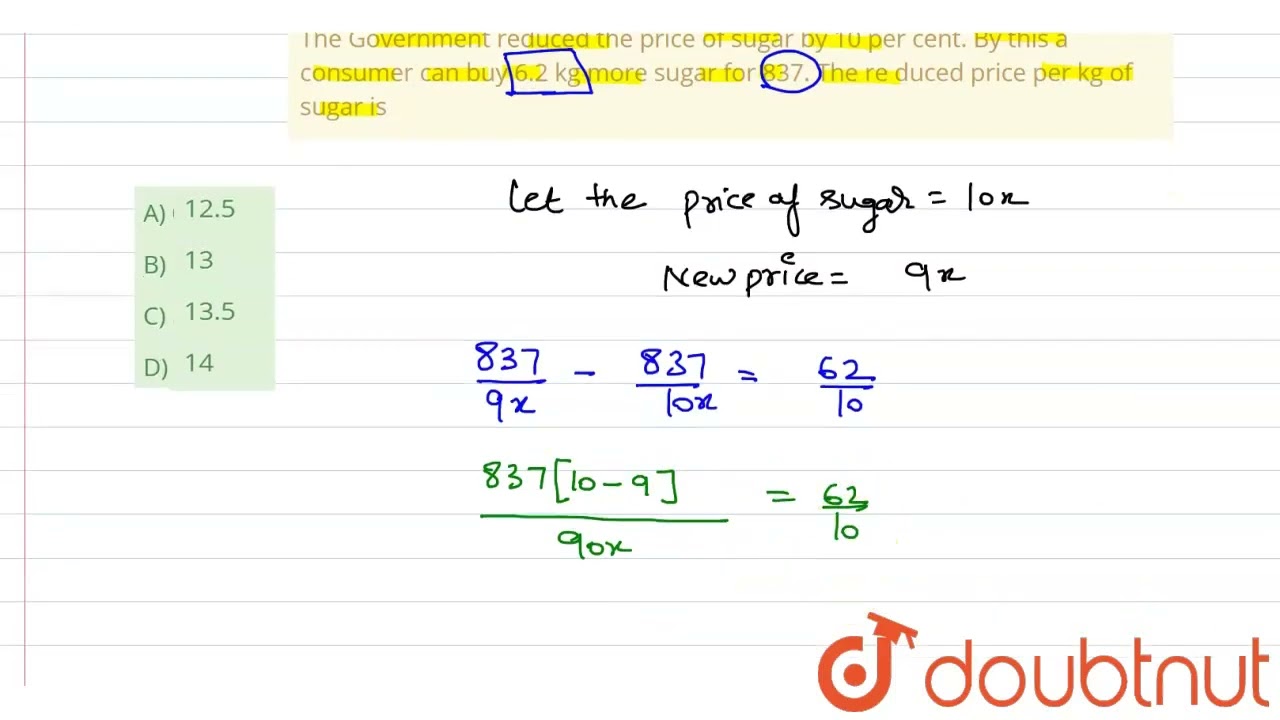 The Government reduced the price of sugar by 10 per cent. By this a
consumer can buy 6.2 kg more sugar for 837. The re duced price per kg of
sugar is
A) 12.5
B) 13
C) 13.5
D) 14
Let the price of sugar = 10x
New price = 9x
837/9x - 837/10x = 62/10
837[10-9]/90x = 62/10
doubtnut